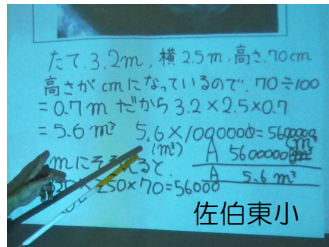 たて.3.2m, 横 2.5m, 高さ.70cm
高さが cmになっているので. 70÷100
=0.7m だから 3.2×2.5×0.7
=5.6m³ 5.6×1000000=5600000
(m³)
A 5600000
mにそろえると.
A 5.6m³
×250×70=56000
佐伯東小